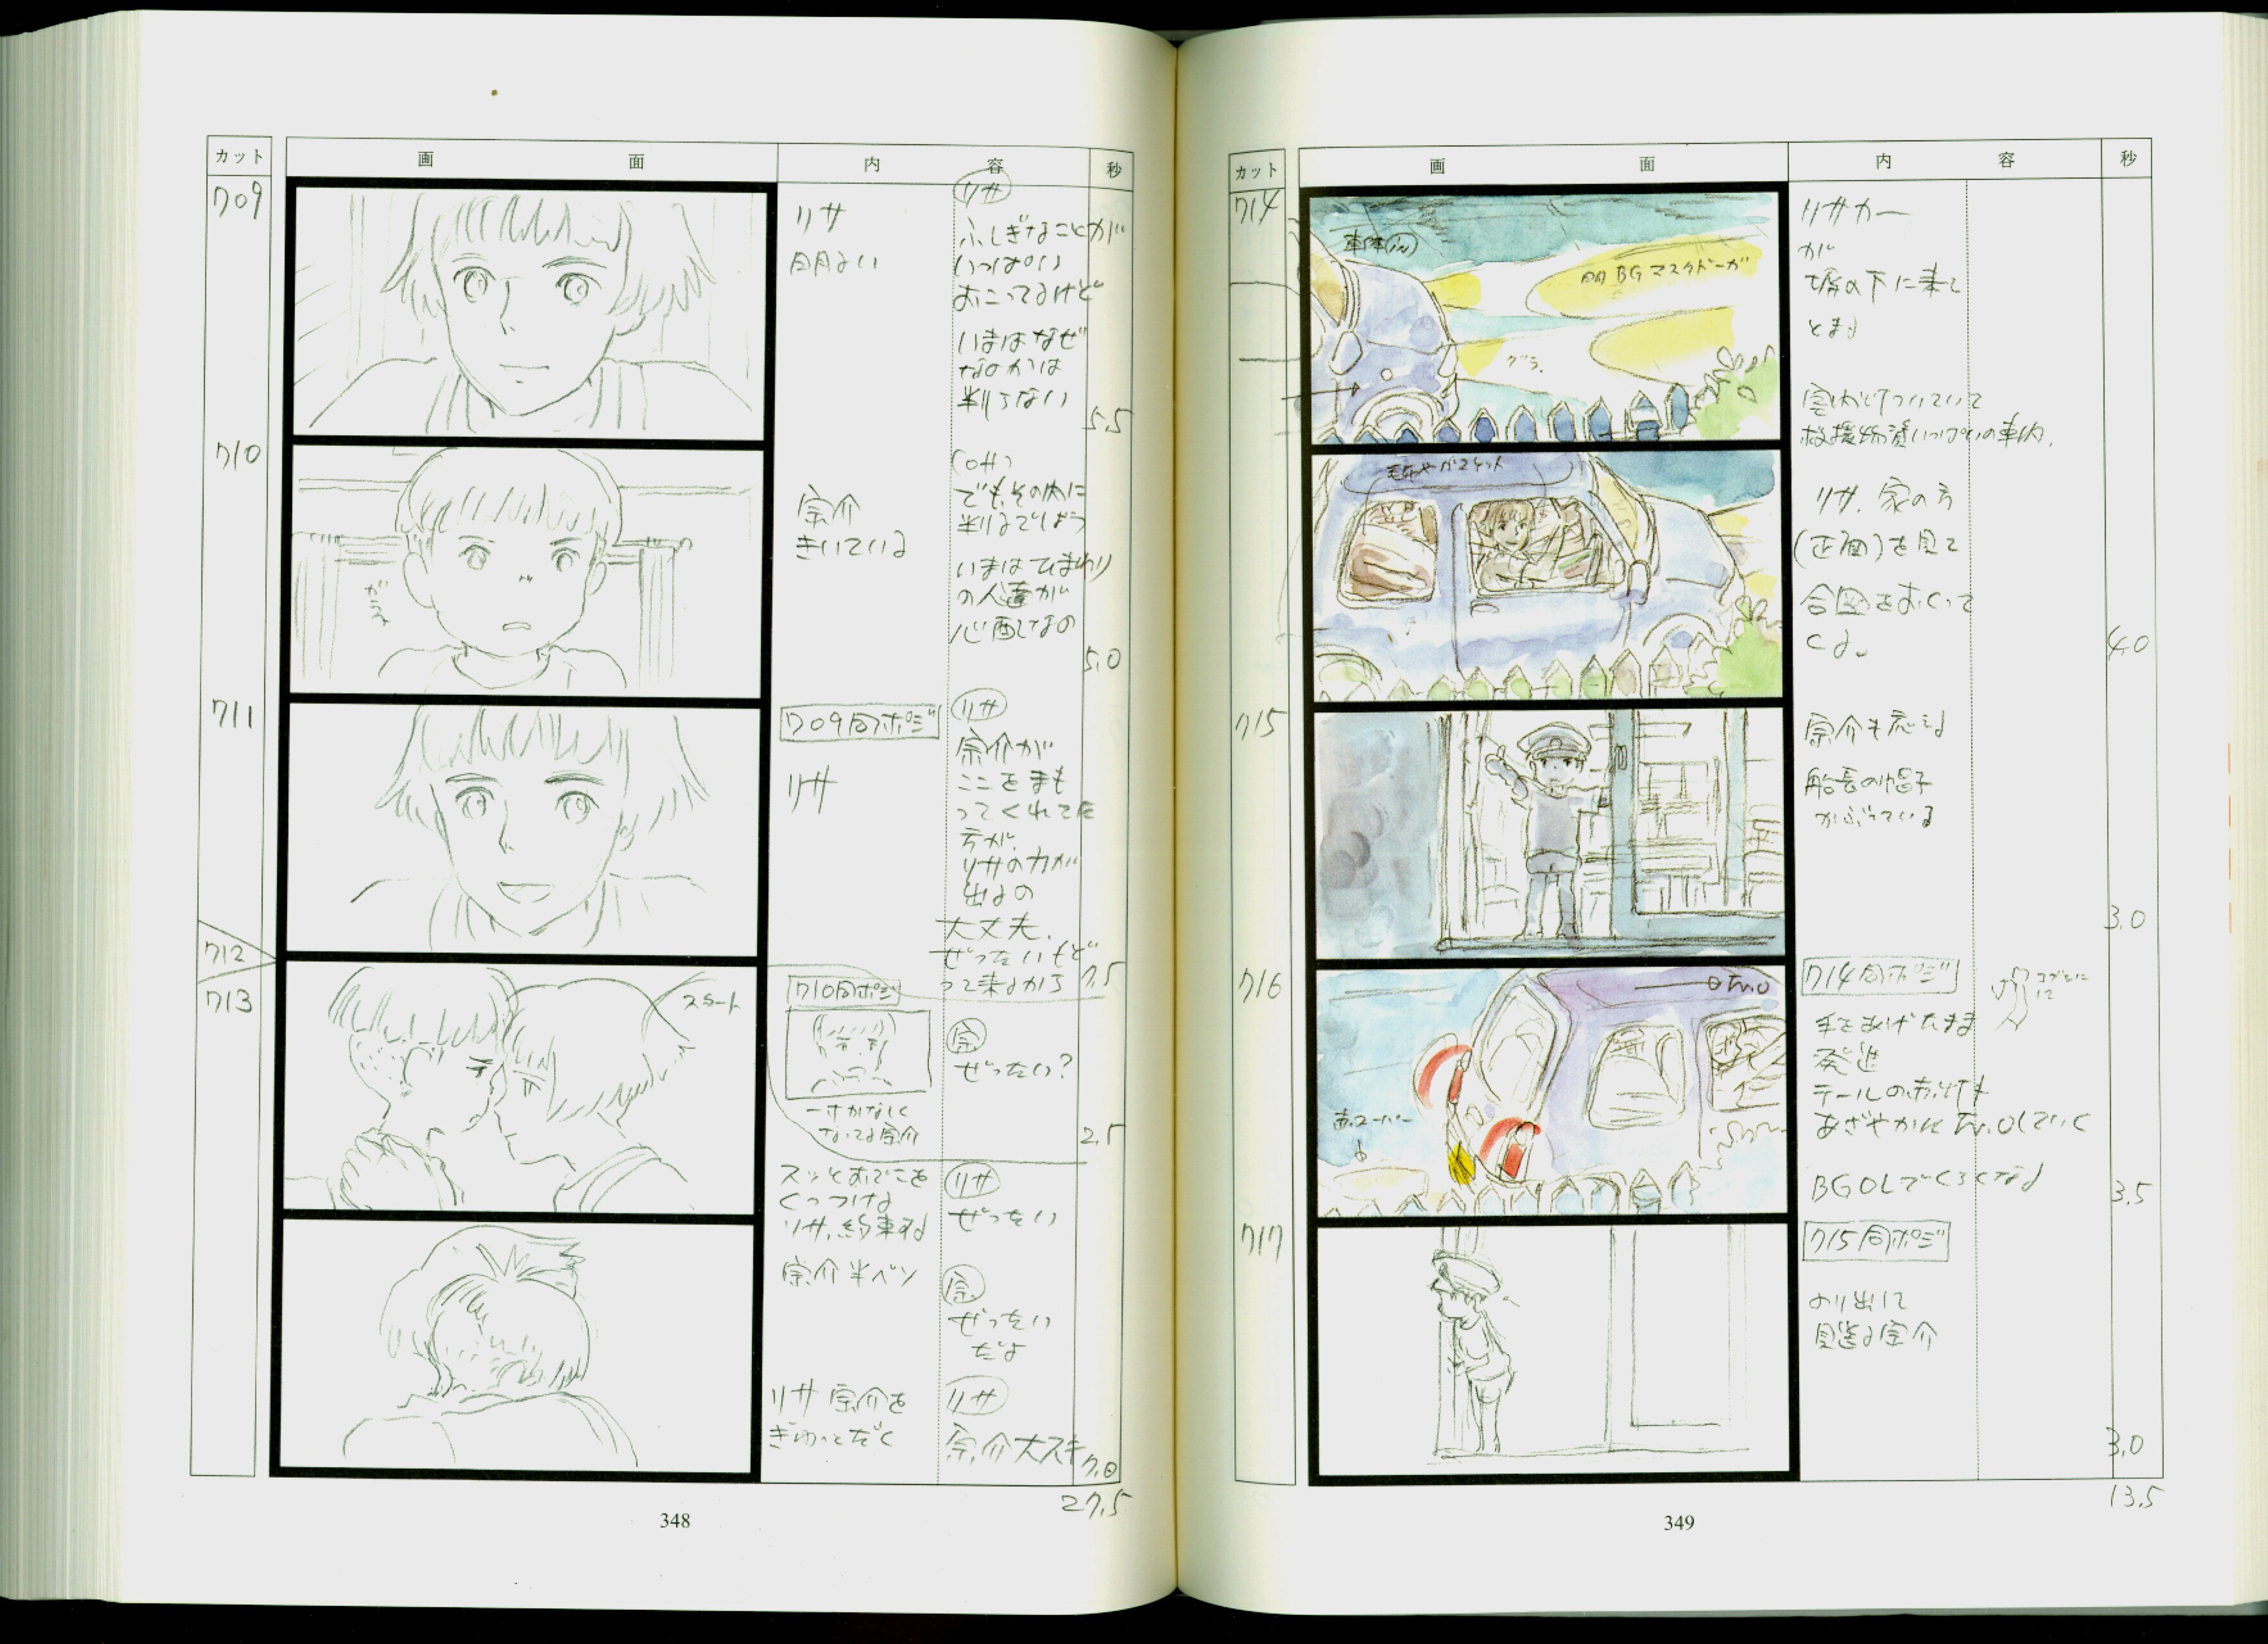 カット
画 面
内 容
秒
709
リサ
明るい
リサ
ふしぎなことが
いっぱい
おこってるけど
いまはなぜ
なのかは
判らない
5.5
710
宗介
きいている
(off)
でも、その内に
判るでしょう
いまはひまわり
の人達が
心配なの
5.0
711
709同ポジ
リサ
リサ
宗介が
ここをまも
ってくれてた
方が、
リサの力が
出るの
大丈夫、
ぜったいもど
って来るから
7.5
712
710同ポジ
宗
ぜったい?
なってる宗介
2.5
713
スッとおでこを
くっつける
リサ、約束ね
リサ
ぜったい
宗介半ベソ
宗
ぜったい
だよ
リサ 宗介を
ぎゅっとだく
リサ
宗介大スキ
7.0
27.5
348
カット
画 面
内 容
秒
714
車体(in)
BGマスク
リサカー
が
塀の下に来て
とまる
救援物資いっぱいの車内、
リサ、家の方
(正面)を見て
合図をおくって
くる。
4.0
715
宗介も応える
船長の帽子
かぶっている
3.0
716
714同ポジ
手をあげたまま
発進
テールの赤い灯も
あざやかに
BG OLでくらくなる
3.5
717
715同ポジ
のり出して
見送る宗介
3.0
13.5
349